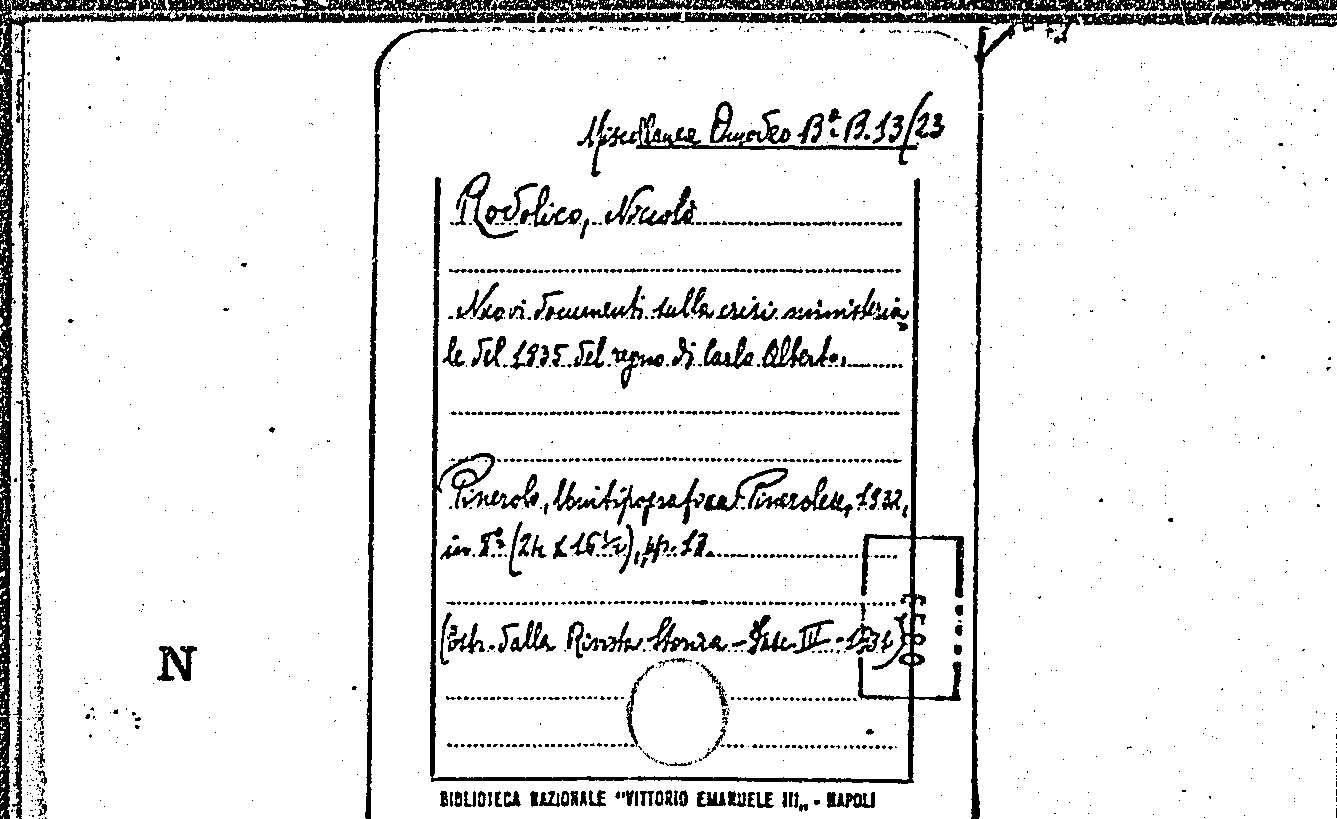 Miscellanea Omodeo Bª. B. 13/23
Rodolico, Niccolò
Nuovi documenti sulla crisi ministeria
le del 1835 del regno di Carlo Alberto.
Pinerolo, Unitipografica Pinerolese, 1932,
in 8° (24 x 16 ½), pp. 18.
(Estr. dalla Rivista Storica - Fasc. III -
N
BIBLIOTECA NAZIONALE "VITTORIO EMANUELE III„ - NAPOLI